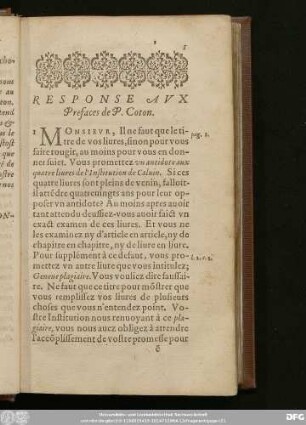 5
RESPONSE AVX
Prefaces de P. Coton.
1 MONSIEVR, Il ne faut que le ti- pag. 2.
tre de vos liures, sinon pour vous
faire rougir, au moins pour vous en don-
ner suiet. Vous promettez vn antidote aux
quatre liures de l'Institution de Caluin. Si ces
quatre liures sont pleins de venin, falloit-
il attẽdre quatre vingts ans pour leur op-
poser vn antidote? Au moins apres auoir
tant attendu deussiez-vous auoir faict vn
exact examen de ces liures. Et vous ne
les examinez ny d'article en article, ny de
chapitre en chapitre, ny de liure en liure.
Pour supplément à ce defaut, vous pro-
mettez vn autre liure que vous intitulez;
Geneue plagiaire. Vous vouliez dire faussai-
re. Ne faut que ce tire pour mõstrer que
vous remplissez vos liures de plusieurs
choses que vous n'entendez point. Vo-
stre Institution nous renuoyant à ce pla-
giaire, vous nous auez obligez à attendre
l'accõplissement de vostre promesse pour